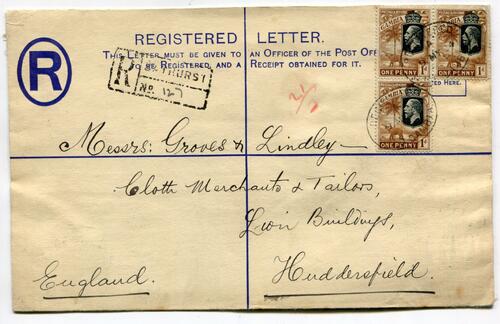 REGISTERED LETTER.
THIS LETTER MUST BE GIVEN TO AN OFFICER OF THE POST OFF
TO BE REGISTERED, AND A RECEIPT OBTAINED FOR IT.
R
R
No 127
GAMBIA
ONE PENNY 1d
GAMBIA
ONE PENNY 1d
GAMBIA
ONE PENNY 1d
HERE.
Messrs: Groves & Lindley
Cloth Merchants & Tailors,
Lion Buildings,
Huddersfield.
England.